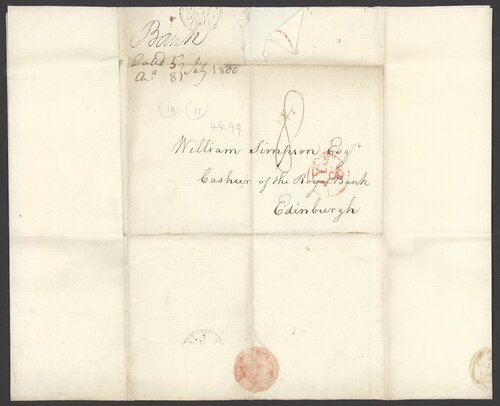 Bank
Dated 5
An.^d 8 } July 1800
10 11
44.99
8
William Simpson Esq^r
Cashier of the Royal Bank
Edinburgh
JY
8